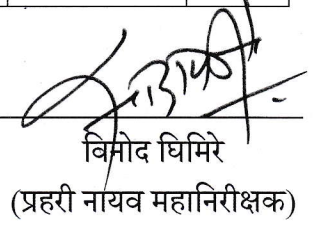 विनोद घिमिरे
(प्रहरी नायव महानिरीक्षक)